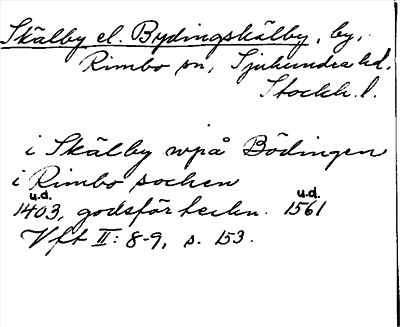 Skälby el. Bydingskälby, by,
Rimbo sn, Sjuhundra hd,
Stockh. l.
i Skälby wpå Bödingen
i Rimbo sochen
u.d. u.d.
1403, godsförteckn. 1561
Vft II: 8-9, s. 153.